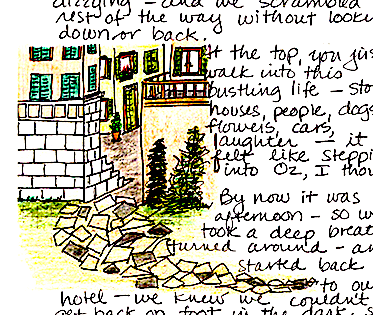 dizzying - and we scrambled
rest of the way without looki
down or back.
At the top, you jus
walk into this
bustling life - sto
houses, people, dogs
flowers, cars,
laughter - it
felt like steppi
into Oz, I thou
By now it was
afternoon - so w
took a deep breat
turned around - an
started back
to ou
hotel - we knew we couldn't
get back on foot in the dark, s